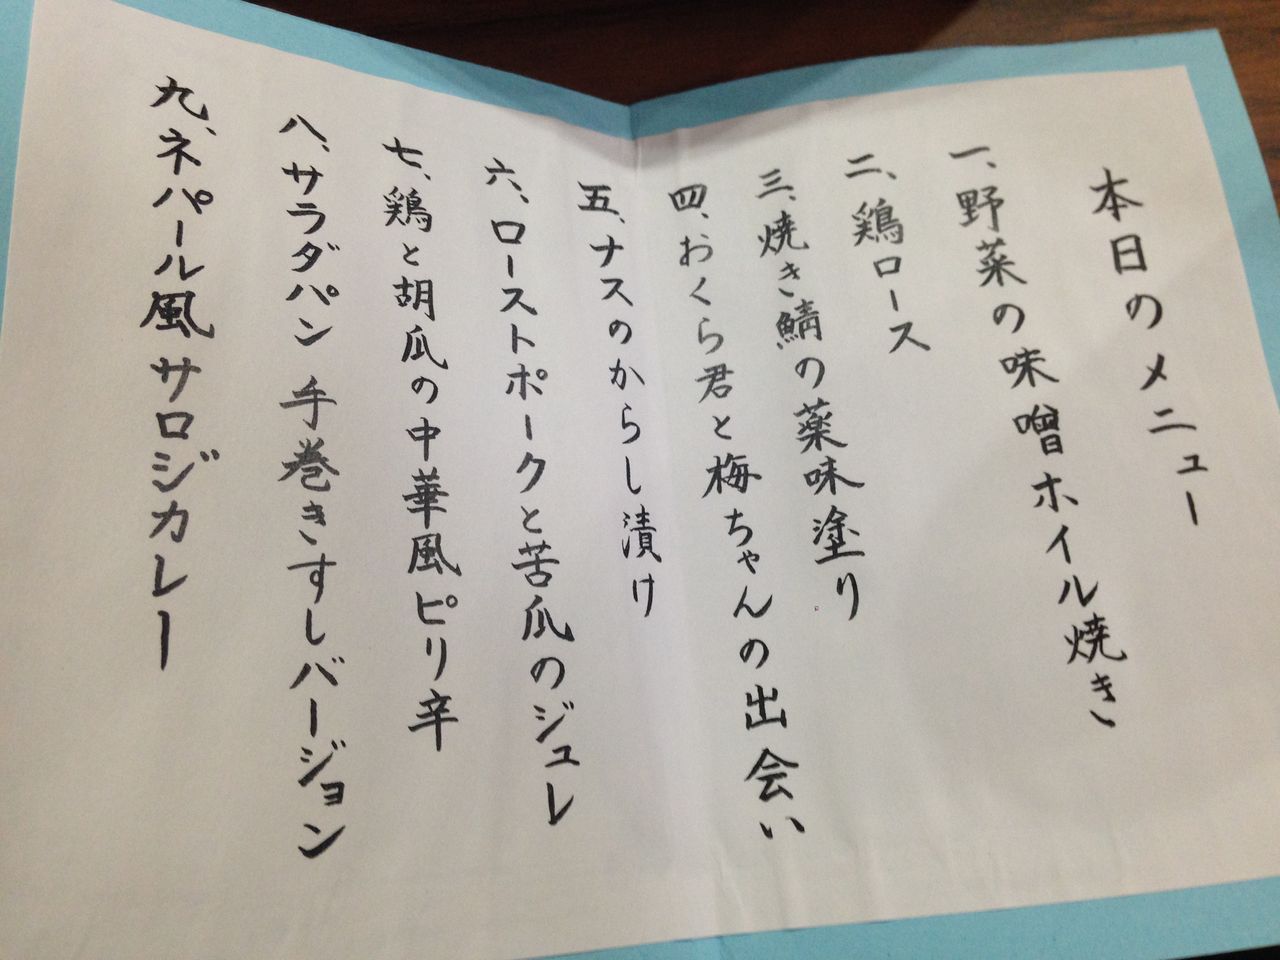 本日のメニュー
一、野菜の味噌ホイル焼き
二、鶏ロース
三、焼き鯖の薬味塗り
四、おくら君と梅ちゃんの出会い
五、ナスのからし漬け
六、ローストポークと苦瓜のジュレ
七、鶏と胡瓜の中華風ピリ辛
八、サラダパン 手巻きすしバージョン
九、ネパール風サロジカレー